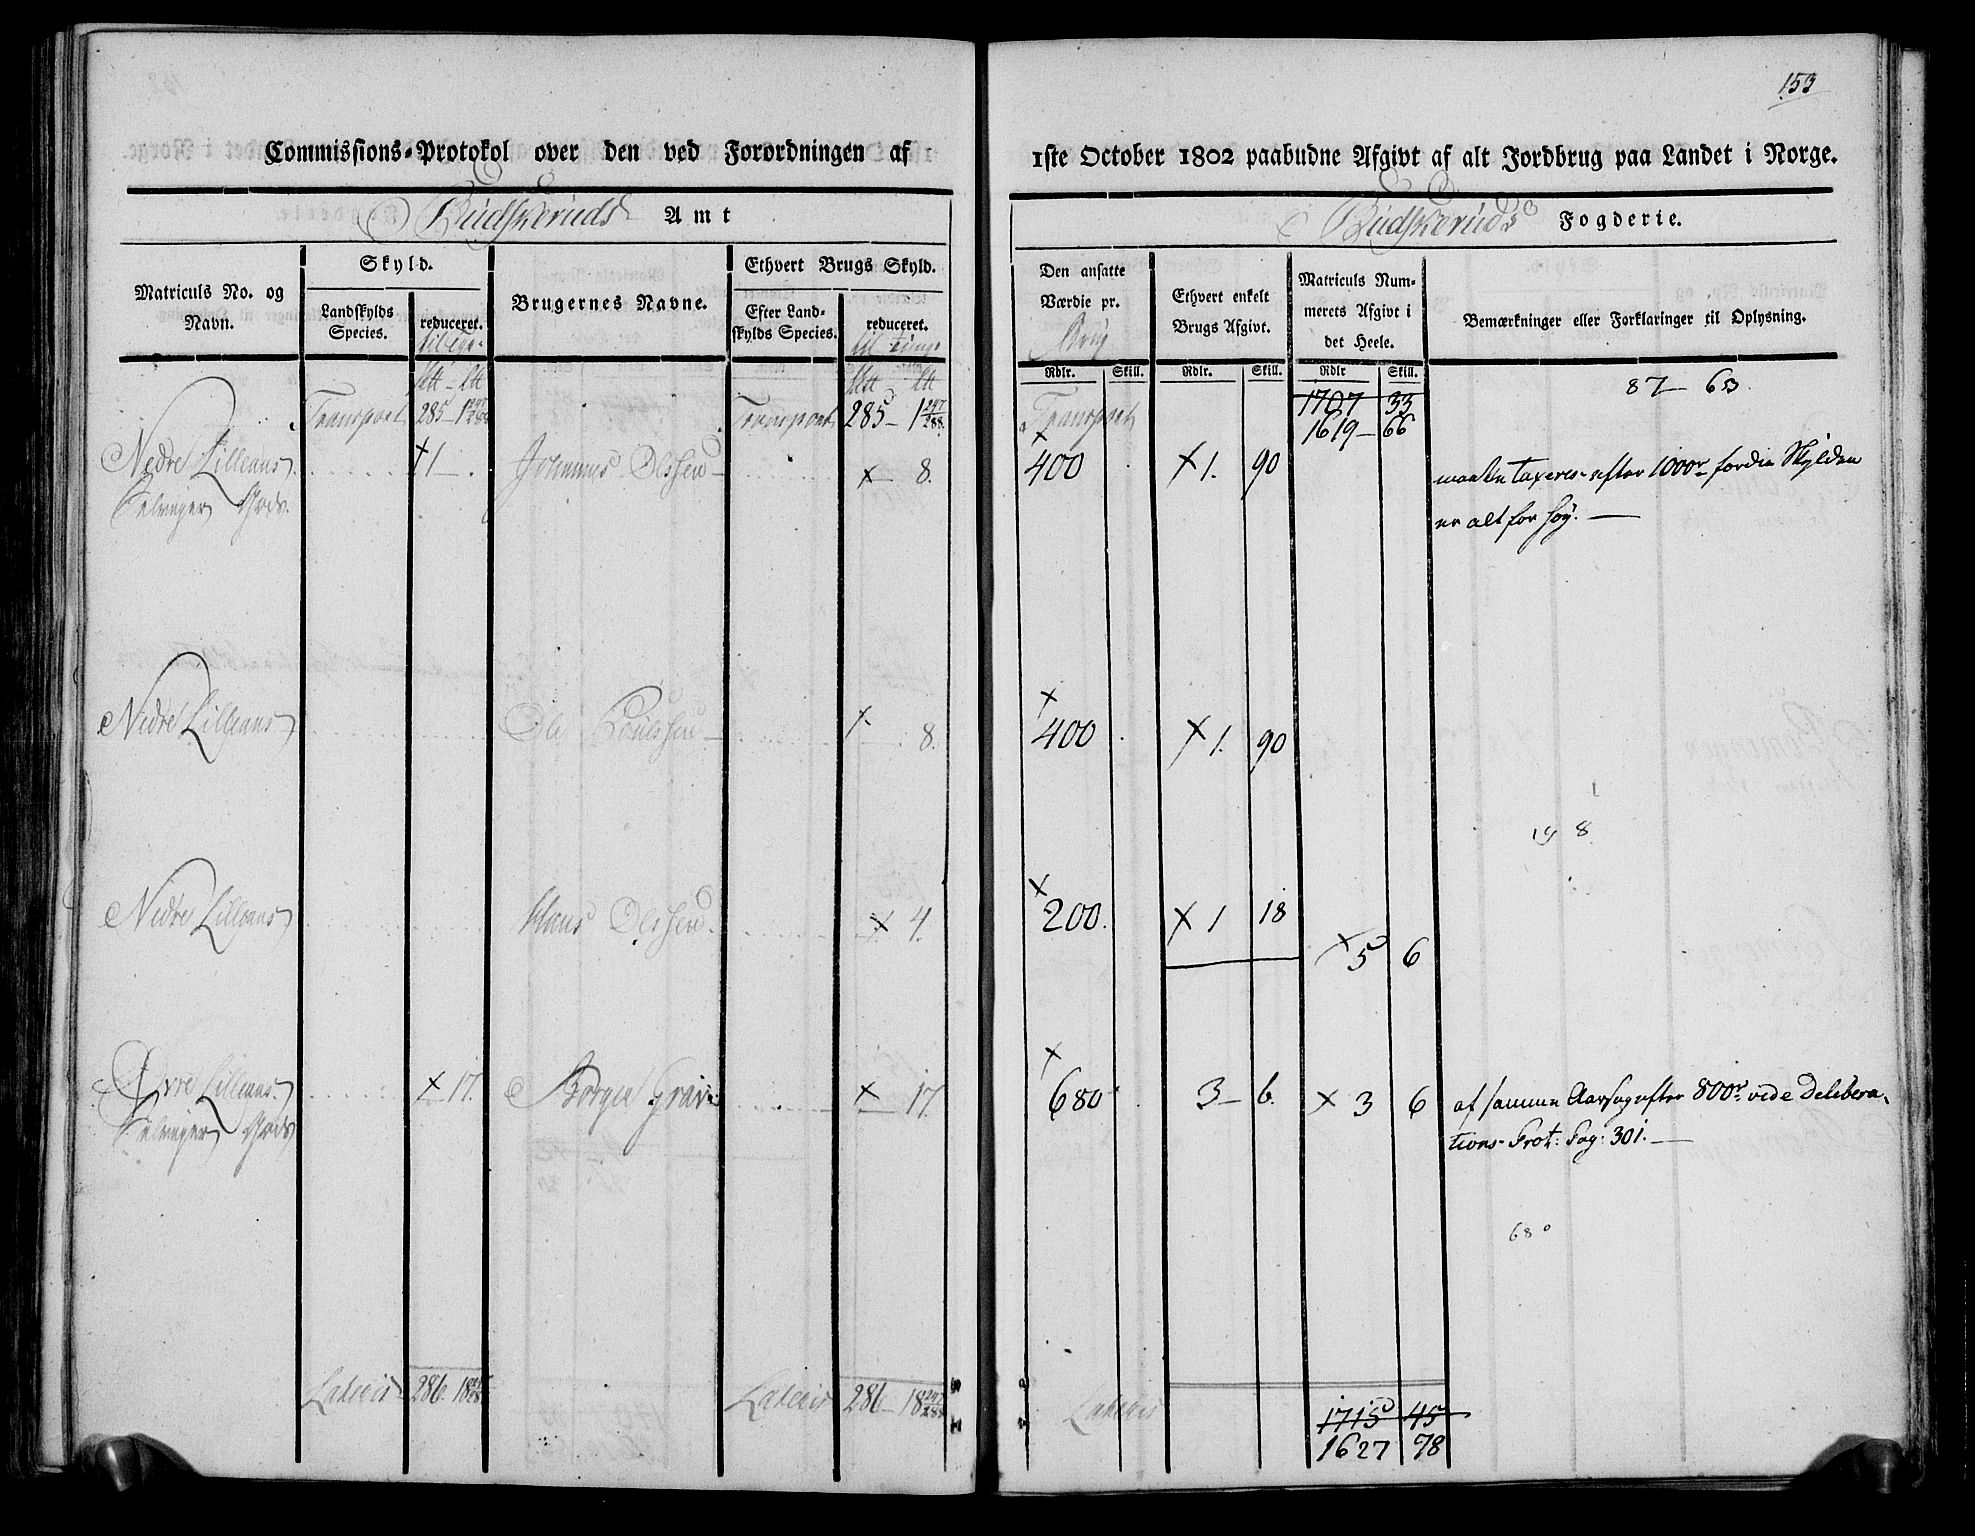 153
Commissions-Protokol over den ved Forordningen af
1ste October 1802 paabudne Afgivt af alt Jordbrug paa Landet i Norge.
Budskeruds Amt
Budskeruds Fogderie.
Matriculs No. og Navn.
Skyld.
Landskylds Species.
reduceret.
Brugernes Navne.
Ethvert Brugs Skyld.
Efter Landskylds Species.
reduceret.
Den ansatte Værdie pr. Brug
Ethvert enkelt Brugs Afgivt.
Matriculs Nummerets Afgivt i det Heele.
Bemærkninger eller Forklaringer til Oplysning.
Rdlr. Skill. Rdlr. Skill. Rdlr Skill.
87 - 63
Transport 285 - 1 247/288 Transport 285 - 1 247/288 Transport 1707 33
1619 - 66
Nedre Lilleaas 1 - . Johannes Olssen 8. 400 1. 90 maatte taxeres efter 1000r fordie Skylden
Selvejer Gods. er alt for høy.
Nedre Lilleaas Ole Poulssen 8. 400 1. 90
198
Nedre Lilleaas Hans Olssen 4. 200. 1 18
5 6
Øvre Lilleaas 17. Borger Grav 17. 680 3 - 6. 3 6 af samme Aarsag efter 800r vide Delibera-
Selvejer Gods tions-Prot: Pag: 301.
680
Lateris 286. 18 247/288 Lateris 286 - 18 247/288 Lateris 1715 45
1627 78